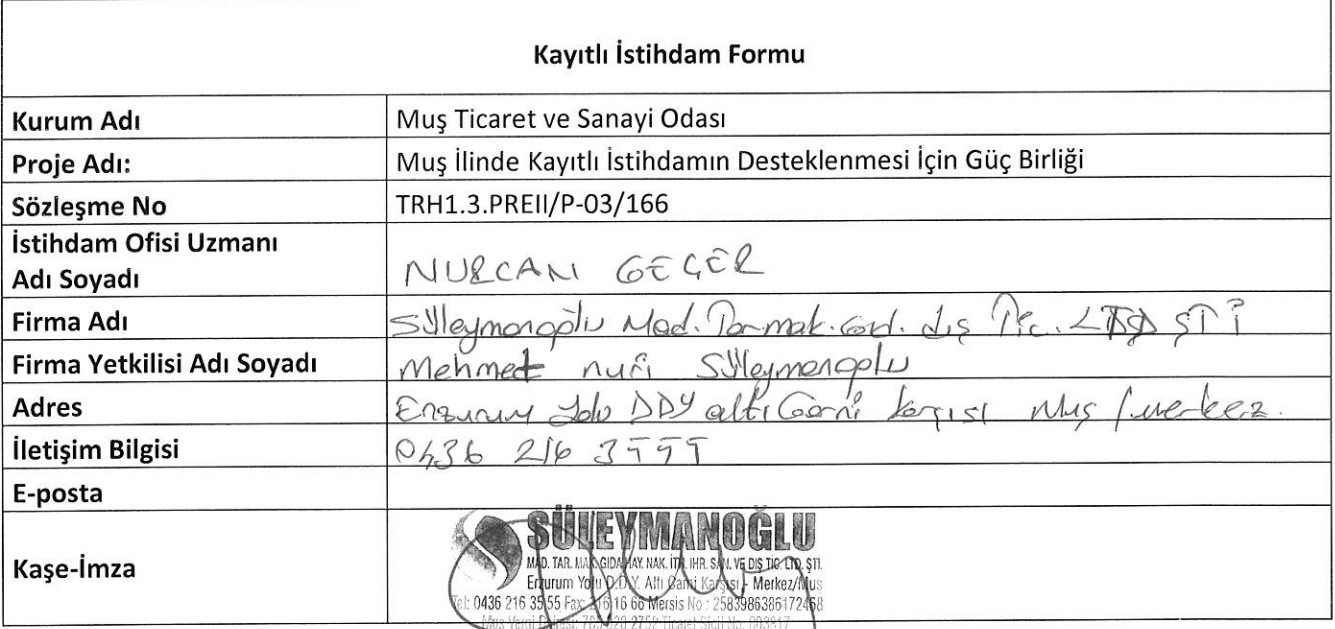 Kayıtlı İstihdam Formu
Kurum Adı Muş Ticaret ve Sanayi Odası
Proje Adı: Muş İlinde Kayıtlı İstihdamın Desteklenmesi İçin Güç Birliği
Sözleşme No TRH1.3.PREII/P-03/166
İstihdam Ofisi Uzmanı
Adı Soyadı NURCAN GEÇER
Firma Adı Süleymanoğlu Mad. Tar.mak. Gıd. dış Tic. LTD ŞTİ
Firma Yetkilisi Adı Soyadı Mehmet nuri Süleymanoğlu
Adres Erzurum Yolu DDY altı Cami karşısı Muş / merkez.
İletişim Bilgisi 0436 216 3555
E-posta
Kaşe-İmza
SÜLEYMANOĞLU
MAD. TAR. MAK. GIDA HAY. NAK. İTH. IHR. SAN. VE DIŞ TİC. LTD. ŞTİ.
Erzurum Yolu D.D.Y. Altı Cami Karşısı - Merkez/Muş
Tel: 0436 216 35 55 Fax: 216 16 66 Mersis No : 2583986386172468
Muş Vergi Dairesi: 2752 Ticaret Sicil No: